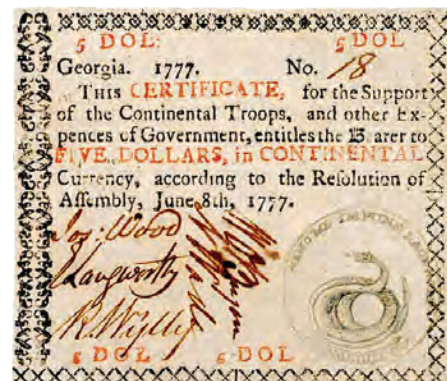 5 DOL: 5 DOL
Georgia. 1777. No. 18
THIS CERTIFICATE, for the Support
of the Continental Troops, and other Ex-
pences of Government, entitles the Bearer to
FIVE DOLLARS, in CONTINENTAL
Currency, according to the Resolution of
Assembly, June 8th, 1777.
Jos: Wood
E Langworthy
R. Wylly
5 DOL 5 DOL